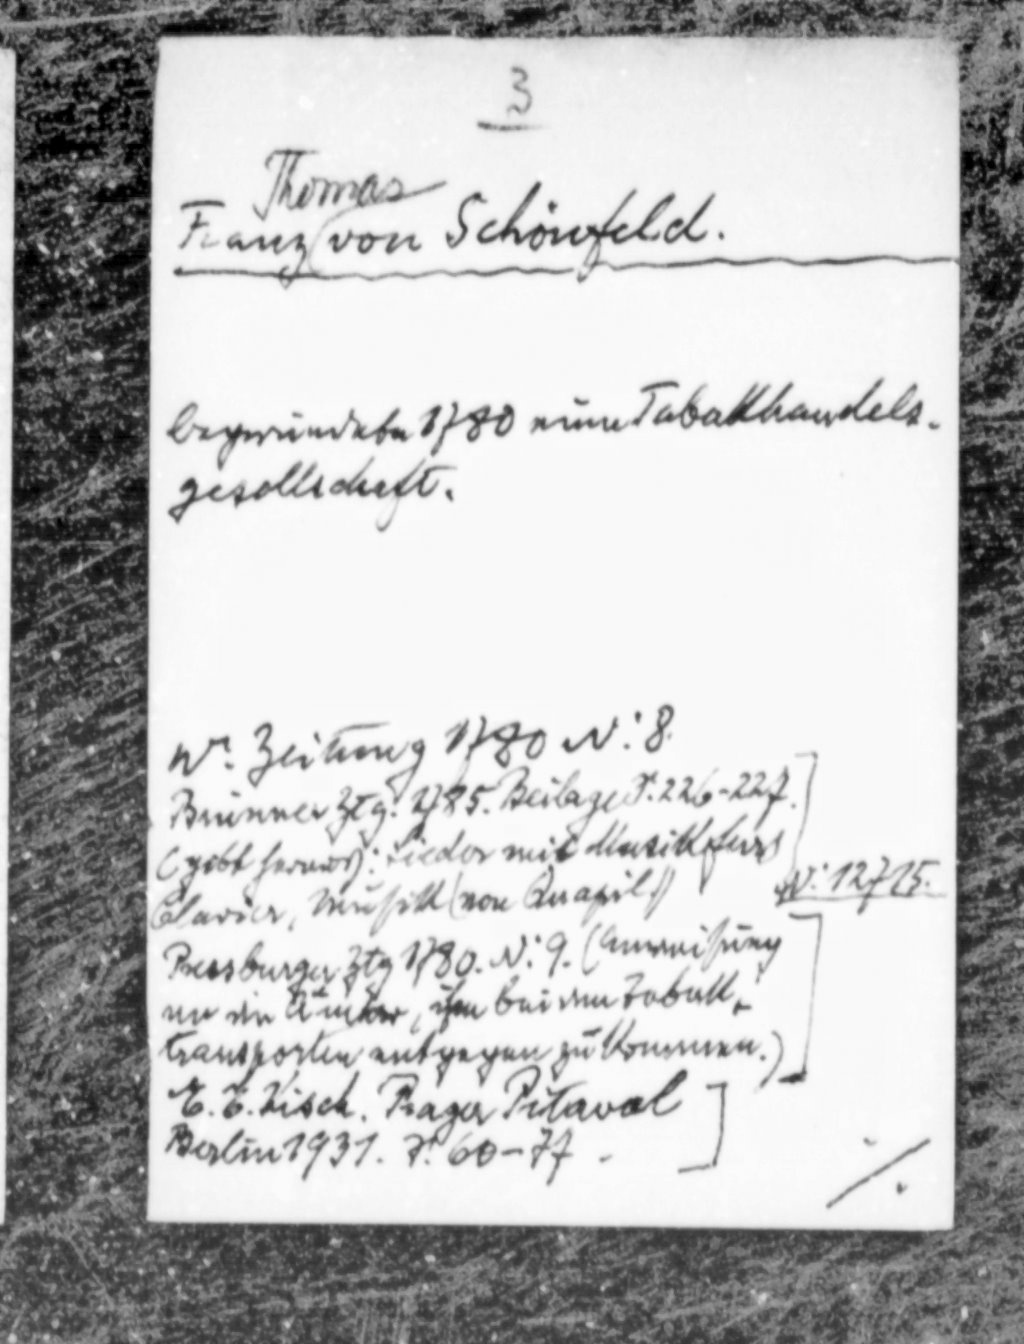 3
Thomas
Franz von Schönfeld.
begründete 1780 eine Tabakhandels-
gesellschaft.
Wr. Zeitung 1780 N: 8.
Brünner Ztg. 1785. Beilage S. 226-227.
(gibt heraus): Lieder mit Musik fürs
Clavier, Musik (von
N: 12715.
Pressburger Ztg 1780. N: 9. (Anweisung
an die Ämter, ihm bei den Tabak-
transporten entgegen zu kommen.)
E. E. Kisch. Prager Pitaval
Berlin 1931. S. 60-77.
./.